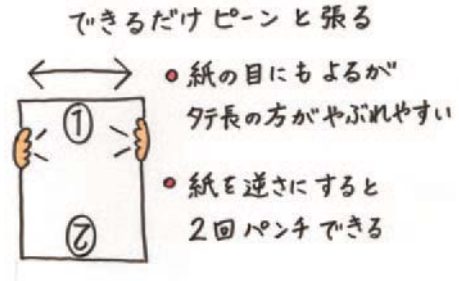 できるだけピーンと張る
● 紙の目にもよるが
タテ長の方がやぶれやすい
① 
● 紙を逆さにすると
2回パンチできる
②